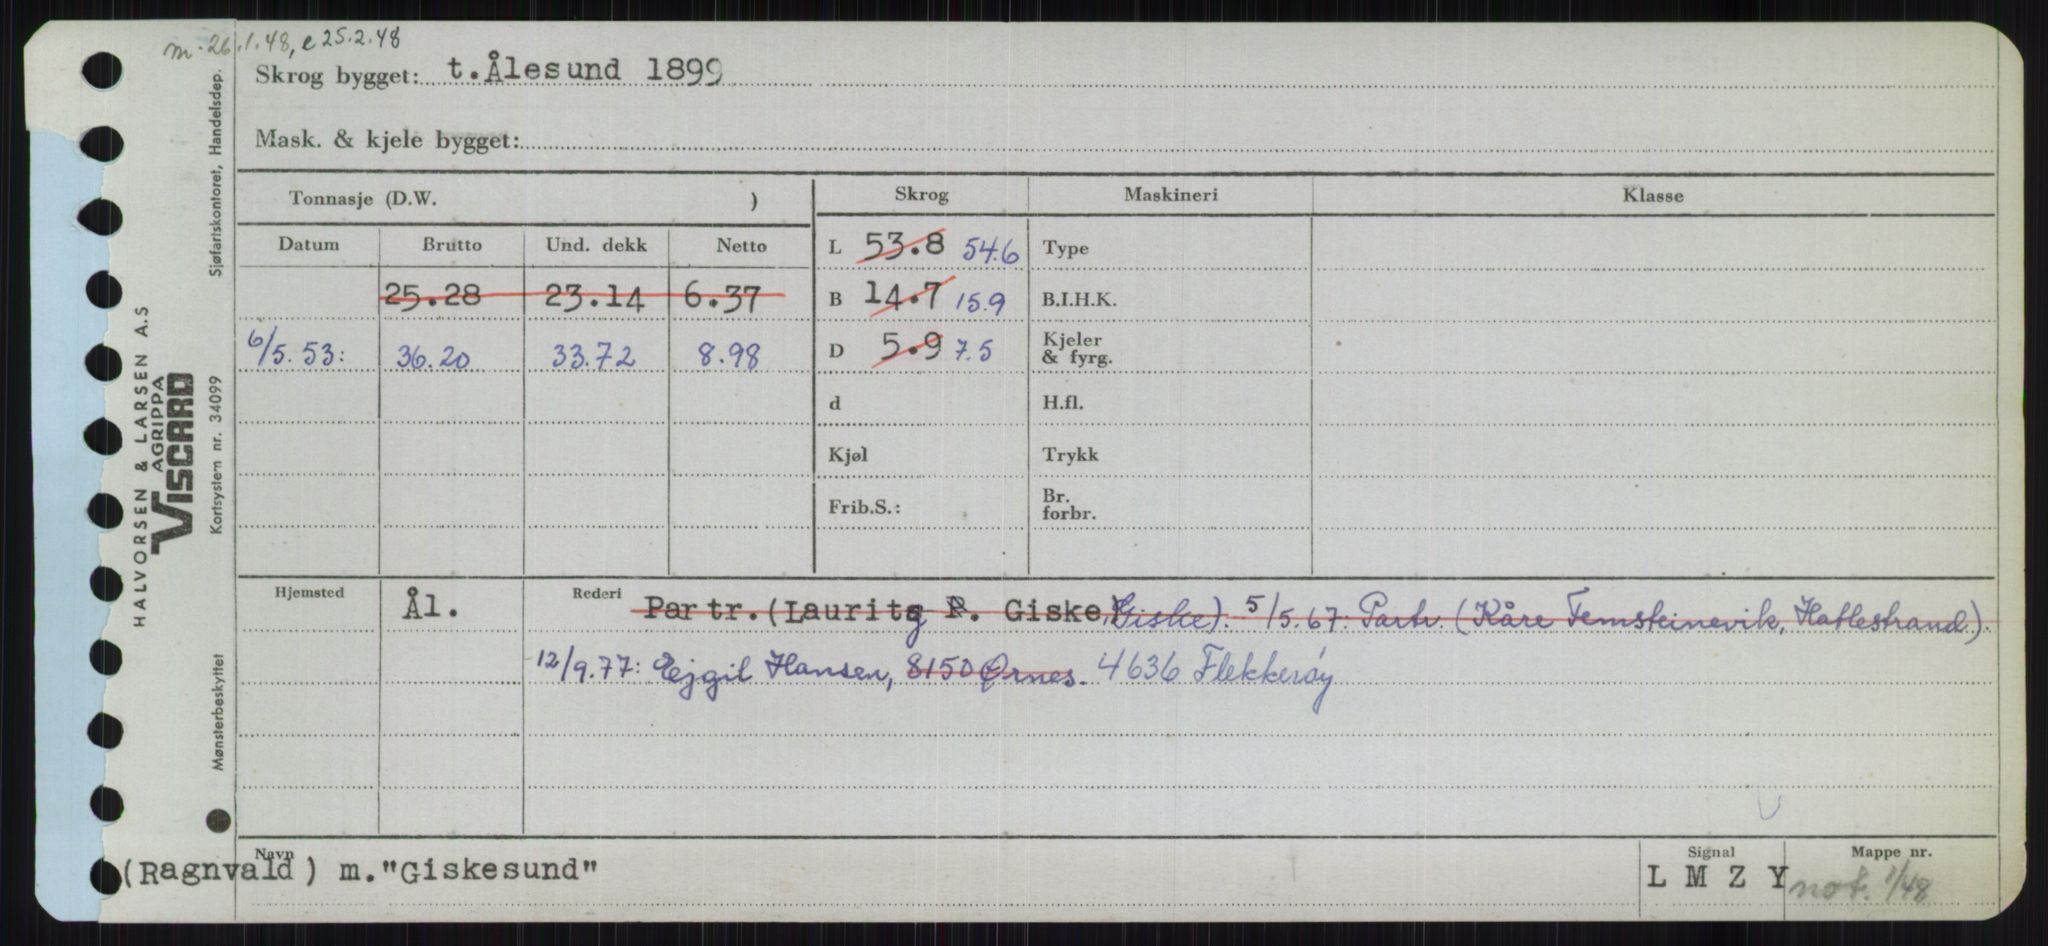 m. 26.1.48, e 25.2.48
Skrog bygget: t.Ålesund 1899
Mask. & kjele bygget:
Tonnasje (D.W. )
Skrog Maskineri Klasse
Datum Brutto Und. dekk Netto
L 53.8 54.6 Type
25.28 23.14 6.37
B 14.7 15.9 B.I.H.K.
6/5.53: 36.20 33.72 8.98
D 5.9 7.5 Kjeler
& fyrg.
d H.fl.
Kjøl Trykk
Frib.S.: Br.
forbr.
Hjemsted Ål. Rederi Partr.(Laurits P. Giske) Giske). 5/5.67: Partr. (Kåre Temsteinevik, Hatlestrand).
12/9.77: Ejgil Hansen, 8150 Ørnes. 4636 Flekkerøy
Navn Signal Mappe nr.
(Ragnvald) m."Giskesund" L M Z Y not. 1/48
Sjøfartskontoret, Handelsdep.
HALVORSEN & LARSEN A.S
AGRIPPA
VISCARD
Kortsystem nr. 34099
Mønsterbeskyttet